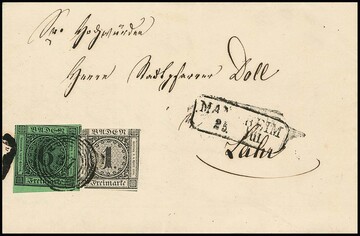 Sr. Hochwürden
Herrn Stadtpfarrer Doll
Lahr
MANNHEIM
25. JUL
BADEN
Freimarke
BADEN
1
Freimarke